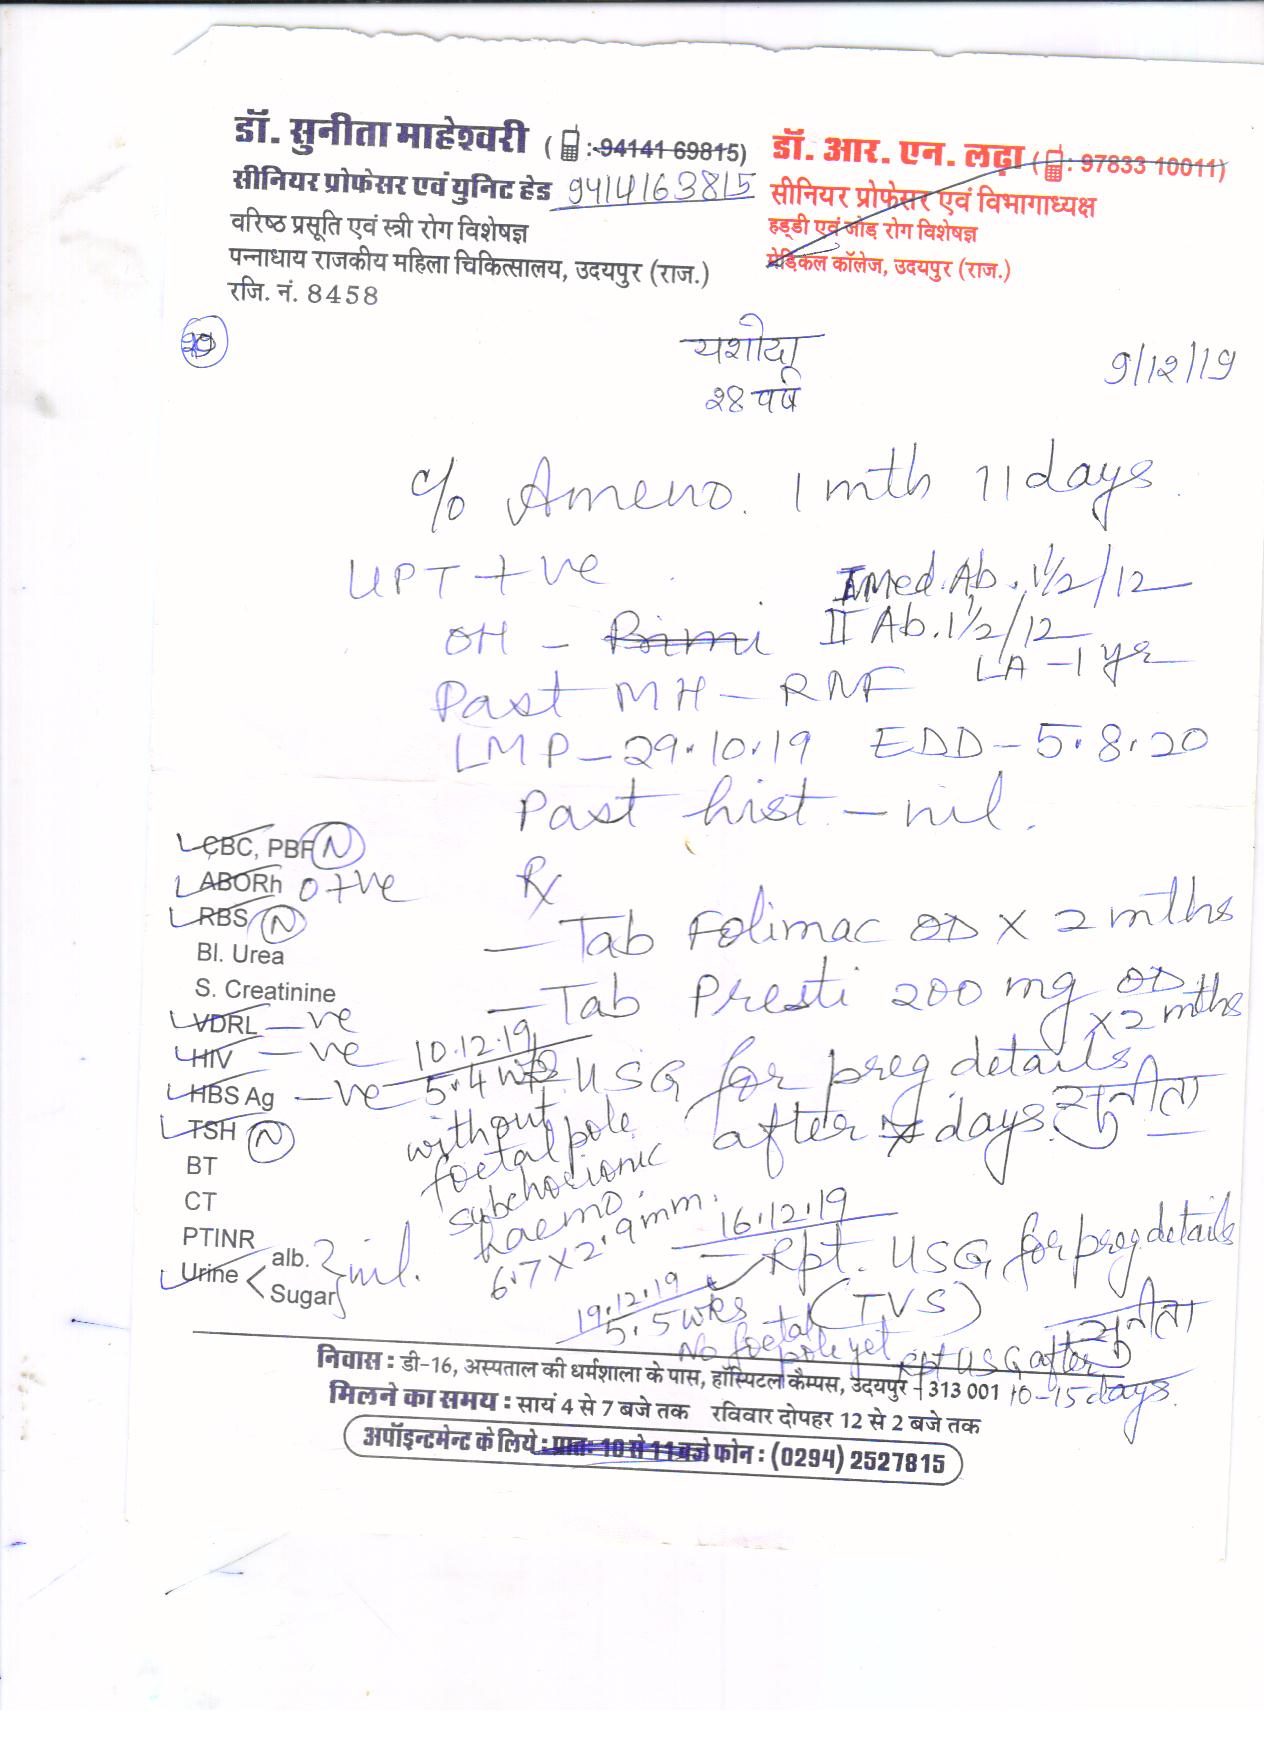 डॉ. सुनीता माहेश्वरी ( : 94141 69815)
सीनियर प्रोफेसर एवं युनिट हेड 9414163815
वरिष्ठ प्रसूति एवं स्त्री रोग विशेषज्ञ
पन्नाधाय राजकीय महिला चिकित्सालय, उदयपुर (राज.)
रजि. नं. 8458
डॉ. आर. एन. लढ़ा ( : 97833 10011)
सीनियर प्रोफेसर एवं विभागाध्यक्ष
हड्डी एवं जोड़ रोग विशेषज्ञ
मेडिकल कॉलेज, उदयपुर (राज.)
यशोदा
२४ वर्ष
9/12/19
c/o Ameno. 1 mth 11 days
UPT +ve
I Med. Ab. 1½/12
OH - Primi II Ab. 1½/12
LA - 1 yr
Past MH - RNF
LMP - 29.10.19 EDD - 5.8.20
Past hist. - nil.
CBC, PBF N
ABORh O +ve
RBS N
Bl. Urea
S. Creatinine
VDRL -ve
HIV -ve
HBS Ag -ve
TSH N
BT
CT
PTINR
Urine < alb. Sugar } nil.
Rx
- Tab Folimac OD X 2 mths
- Tab Presti 200 mg OD
X 2 mths
- USG for preg details
after 7 days. सुनीता
10.12.19
5.4 wks
without
foetal pole
subchorionic
haemo.
6.7 X 2.9 mm.
16.12.19
- Rpt. USG for preg details
(TVS)
सुनीता
19.12.19
5.5 wks
No foetal
pole yet
Rpt USG after
10-15 days.
निवास : डी-16, अस्पताल की धर्मशाला के पास, हॉस्पिटल कैम्पस, उदयपुर - 313 001
मिलने का समय : सायं 4 से 7 बजे तक रविवार दोपहर 12 से 2 बजे तक
अपॉइन्टमेन्ट के लिये : प्रातः 10 से 11 बजे फोन : (0294) 2527815